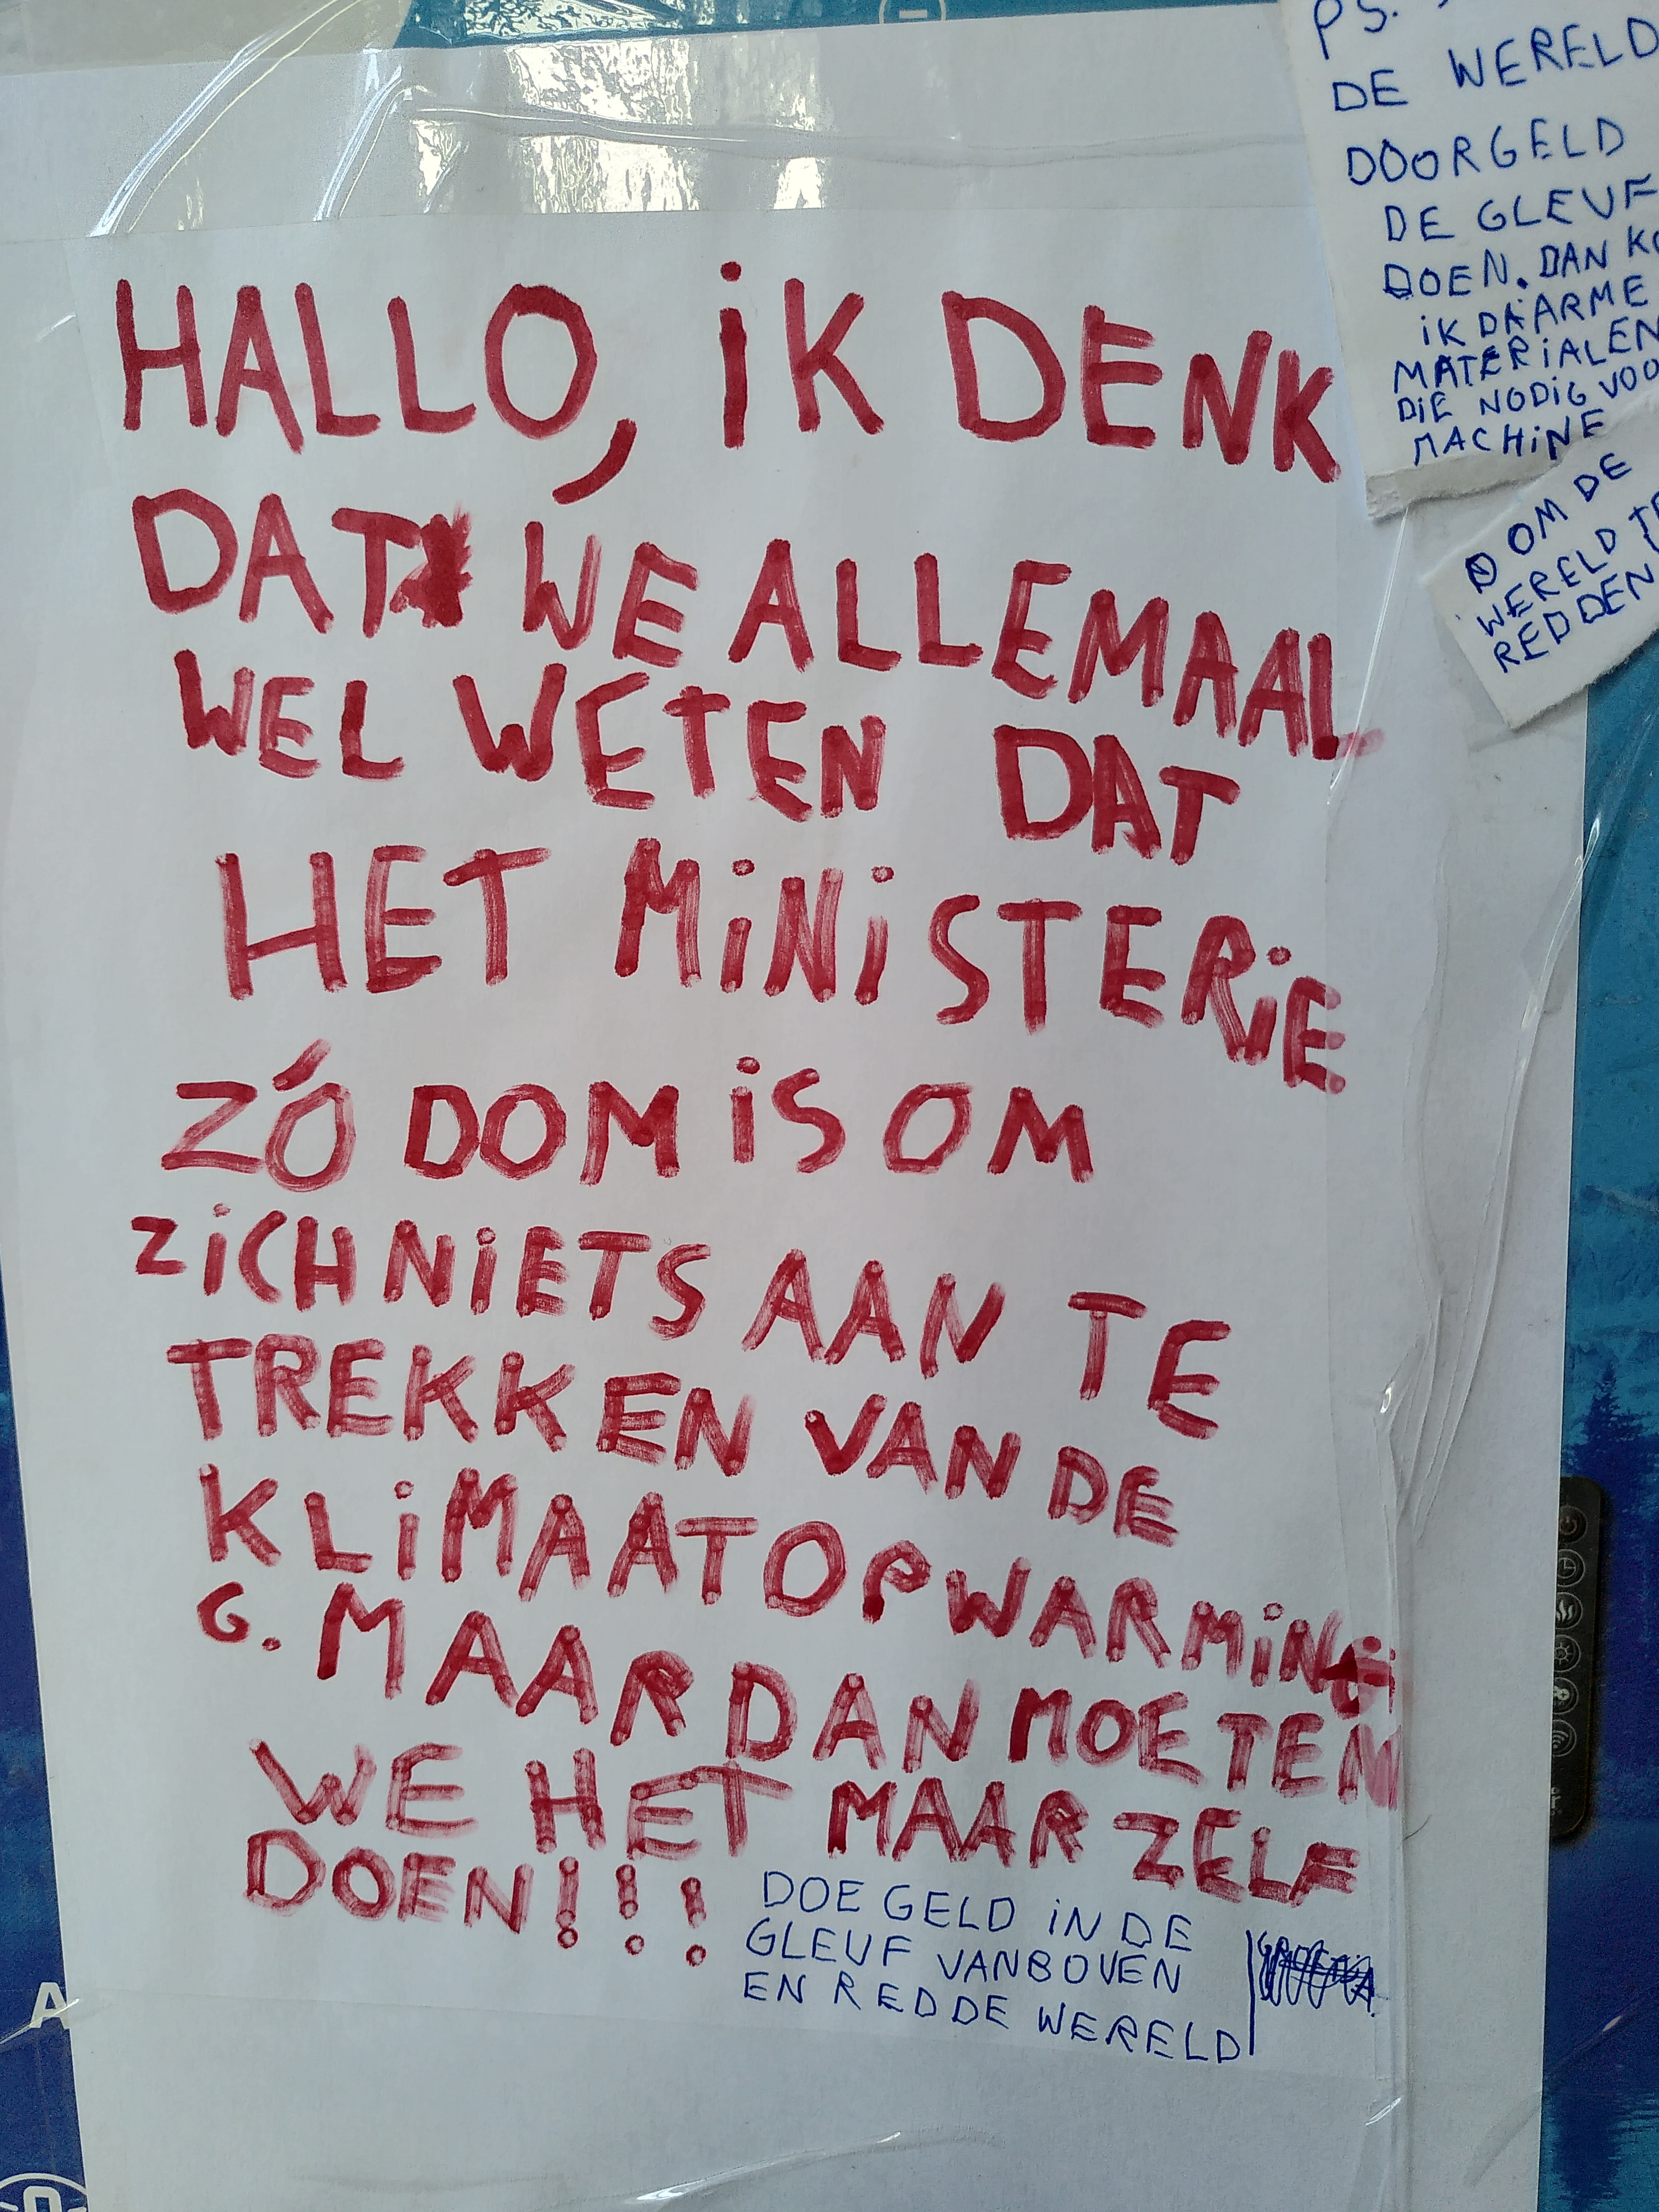 HALLO, iK DENK
DAT WE ALLEMAAL
WEL WETEN DAT
HET MiNiSTERiE
ZÓ DOM iS OM
ZiCH NiETS AAN TE
TREKKEN VAN DE
KLiMAATOPWARMiN
G. MAAR DAN MOETEN
WE HET MAAR ZELF
DOEN!!!
DOE GELD iN DE
GLEUF VANBOVEN
EN RED DE WERELD
PS.
DE WERELD
DOORGELD
DE GLEUF
DOEN. DAN
iK DAARME
MATERiALEN
DiE NODiG VOO
MACHiNE
OM DE
WERELD TE
REDDEN